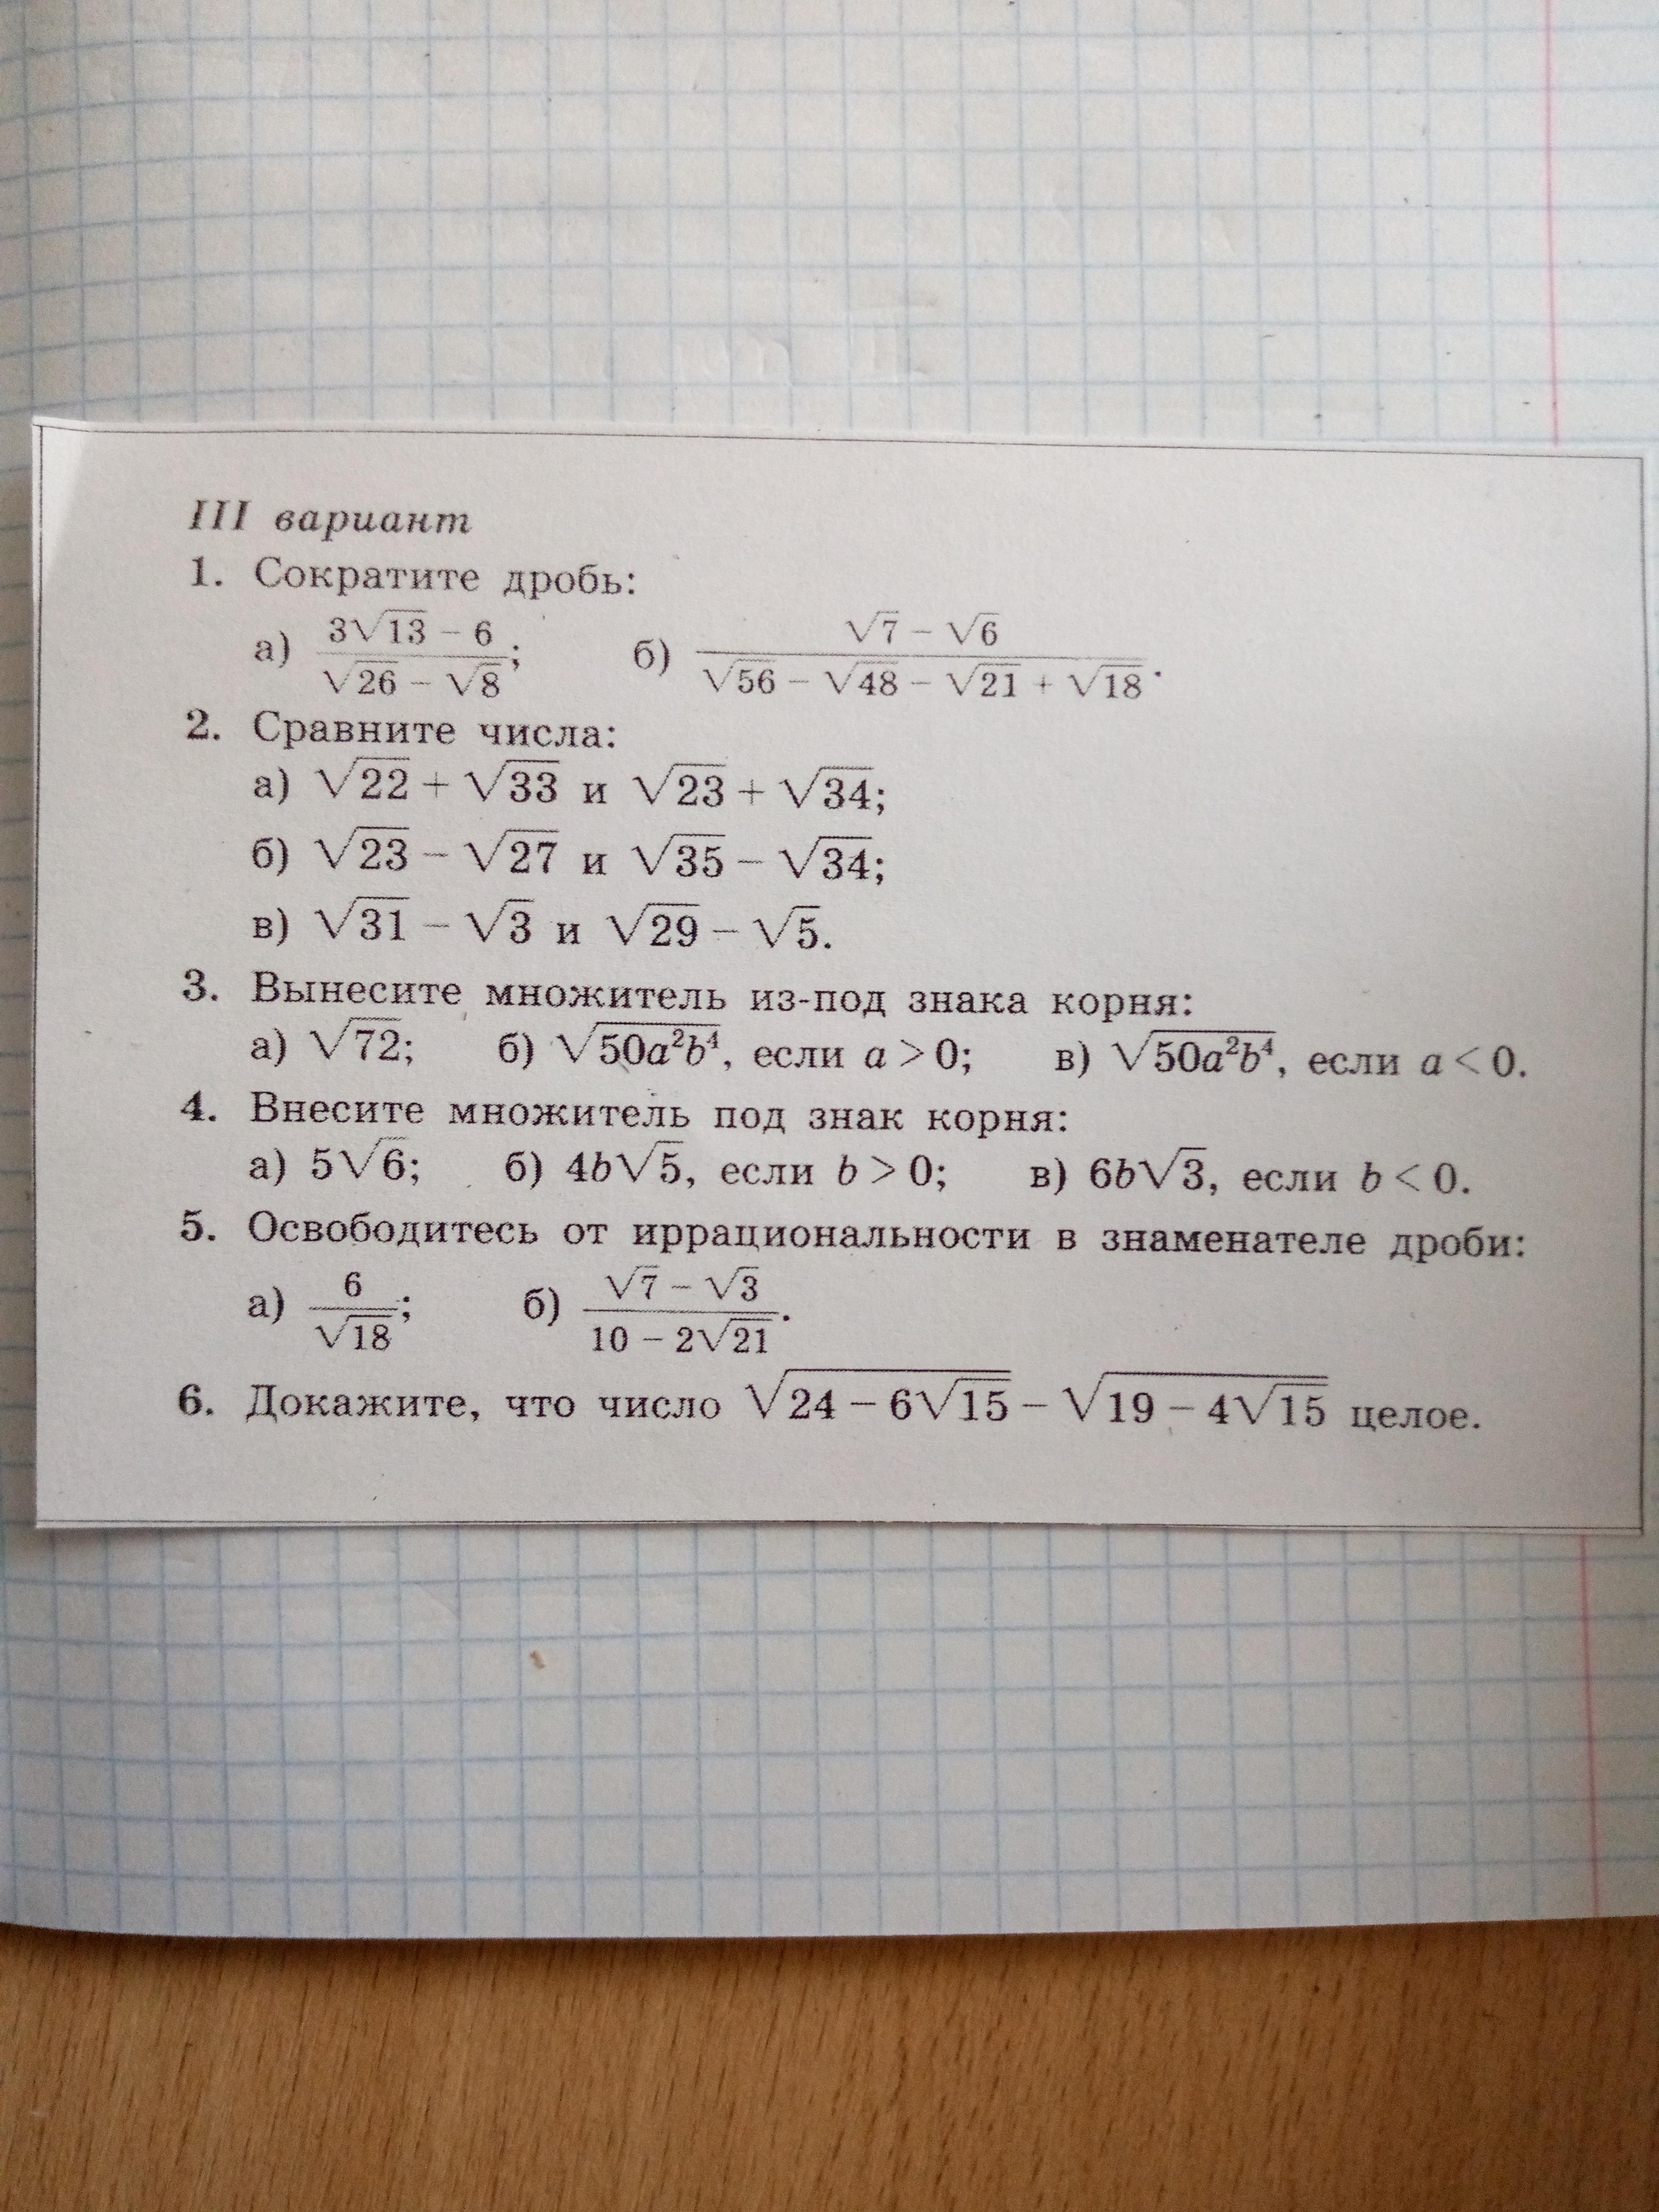 III вариант
1. Сократите дробь:
а) (3√13 − 6)/(√26 − √8); б) (√7 − √6)/(√56 − √48 − √21 + √18).
2. Сравните числа:
а) √22 + √33 и √23 + √34;
б) √23 − √27 и √35 − √34;
в) √31 − √3 и √29 − √5.
3. Вынесите множитель из-под знака корня:
а) √72; б) √(50a²b⁴), если a > 0; в) √(50a²b⁴), если a < 0.
4. Внесите множитель под знак корня:
а) 5√6; б) 4b√5, если b > 0; в) 6b√3, если b < 0.
5. Освободитесь от иррациональности в знаменателе дроби:
а) 6/√18; б) (√7 − √3)/(10 − 2√21).
6. Докажите, что число √(24 − 6√15) − √(19 − 4√15) целое.